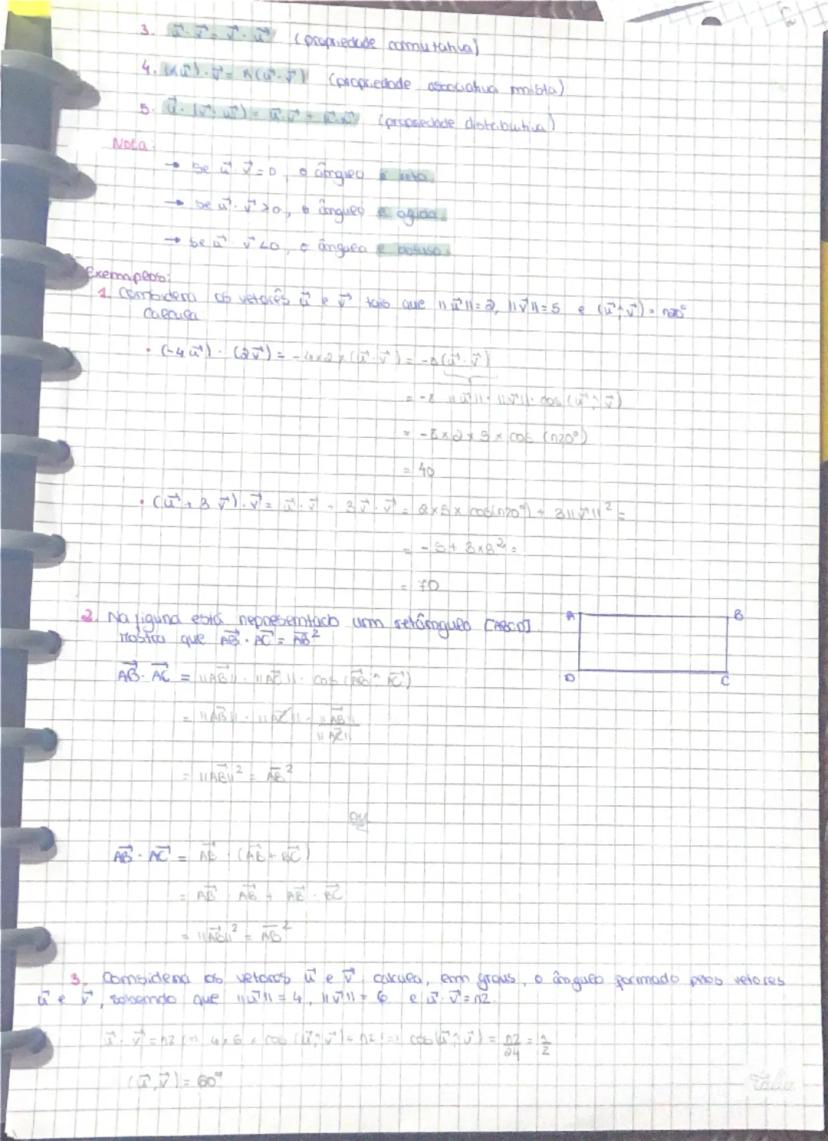 3. u⃗ · v⃗ = v⃗ · u⃗ (propriedade comutativa)
4. (λu⃗) · v⃗ = λ(u⃗ · v⃗) (propriedade associativa mista)
5. u⃗ · (v⃗ + w⃗) = u⃗ · v⃗ + u⃗ · w⃗ (propriedade distributiva)
Nota:
→ Se u⃗ · v⃗ = 0, o ângulo é reto.
→ Se u⃗ · v⃗ > 0, o ângulo é agudo.
→ Se u⃗ · v⃗ < 0, o ângulo é obtuso.
Exemplos:
1. Considera os vetores u⃗ e v⃗ tais que ||u⃗||=2, ||v⃗||=5 e (u⃗^v⃗) = 120°
Calcula
• (-4u⃗) · (2v⃗) = -4×2×(u⃗ · v⃗) = -8(u⃗ · v⃗)
= -8 ||u⃗|| · ||v⃗|| · cos (u⃗^v⃗)
= -8×2×5×cos (120°)
= 40
• (u⃗ + 3v⃗) · v⃗ = u⃗ · v⃗ + 3v⃗ · v⃗ = 2×5×cos(120°) + 3||v⃗||² =
= -5 + 3×5² =
= 70
2. Na figura está representado um retângulo [ABCD]
Mostra que AB⃗ · AC⃗ = A̅B̅²
A B
D C
AB⃗ · AC⃗ = ||AB⃗|| · ||AC⃗|| · cos (AB⃗^AC⃗)
= ||AB⃗|| · ||AC⃗|| · ||AB⃗||/||AC⃗||
= ||AB⃗||² = A̅B̅²
ou
AB⃗ · AC⃗ = AB⃗ · (AB⃗ + BC⃗)
= AB⃗ · AB⃗ + AB⃗ · BC⃗
= ||AB⃗||² = A̅B̅²
3. Considera os vetores u⃗ e v⃗, calcula, em graus, o ângulo formado pelos vetores
u⃗ e v⃗, sabendo que ||u⃗|| = 4, ||v⃗|| = 6 e u⃗ · v⃗ = 12.
u⃗ · v⃗ = 12 (=) 4×6×cos (u⃗^v⃗) = 12 (=) cos(u⃗^v⃗) = 12/24 = 1/2
(u⃗^v⃗) = 60°